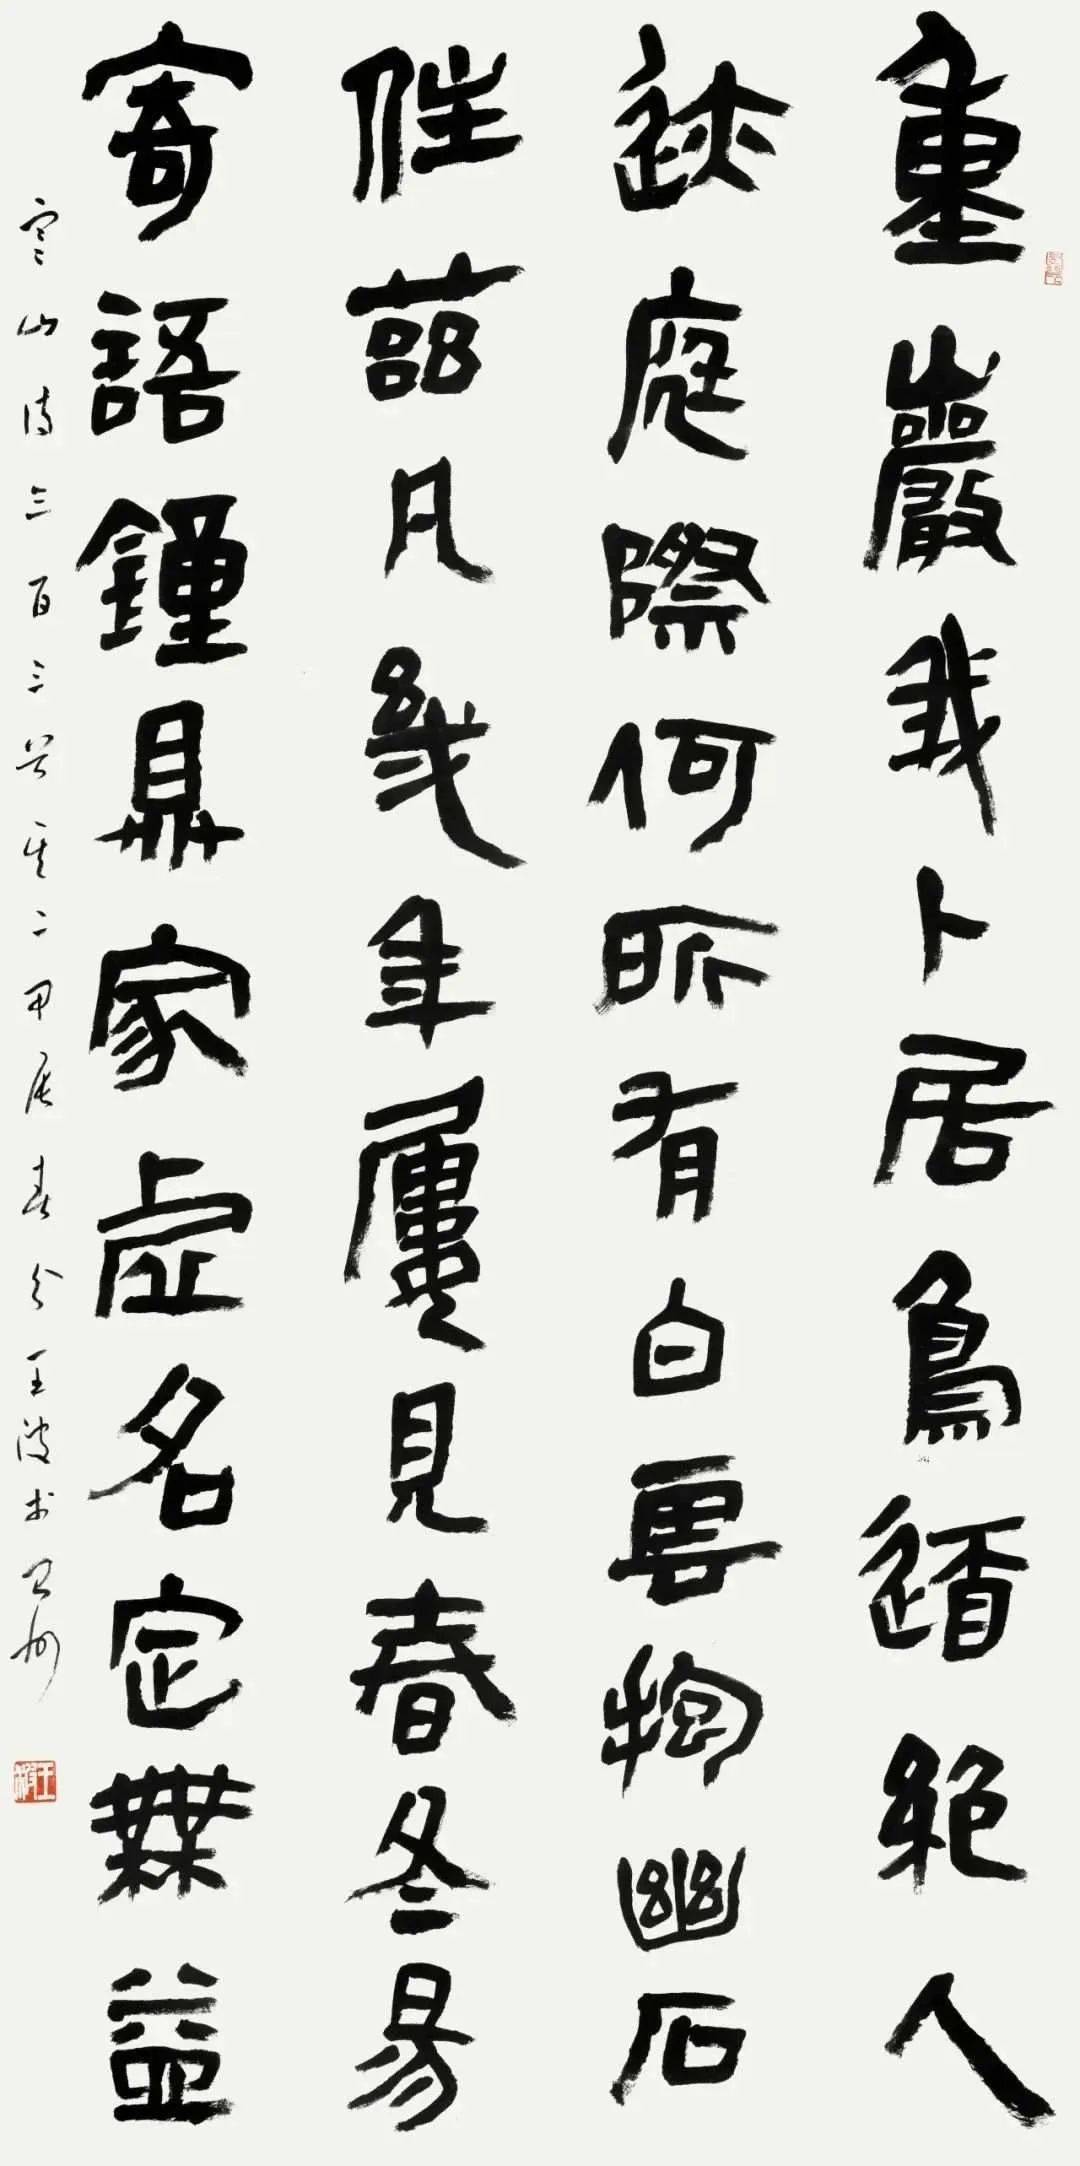 重巖我卜居鳥道絕人
迹庭際何所有白雲抱幽石
住茲凡幾年屢見春冬易
寄語鐘鼎家虛名定無益
寒山詩三百三首其二甲辰春分王波书
王波